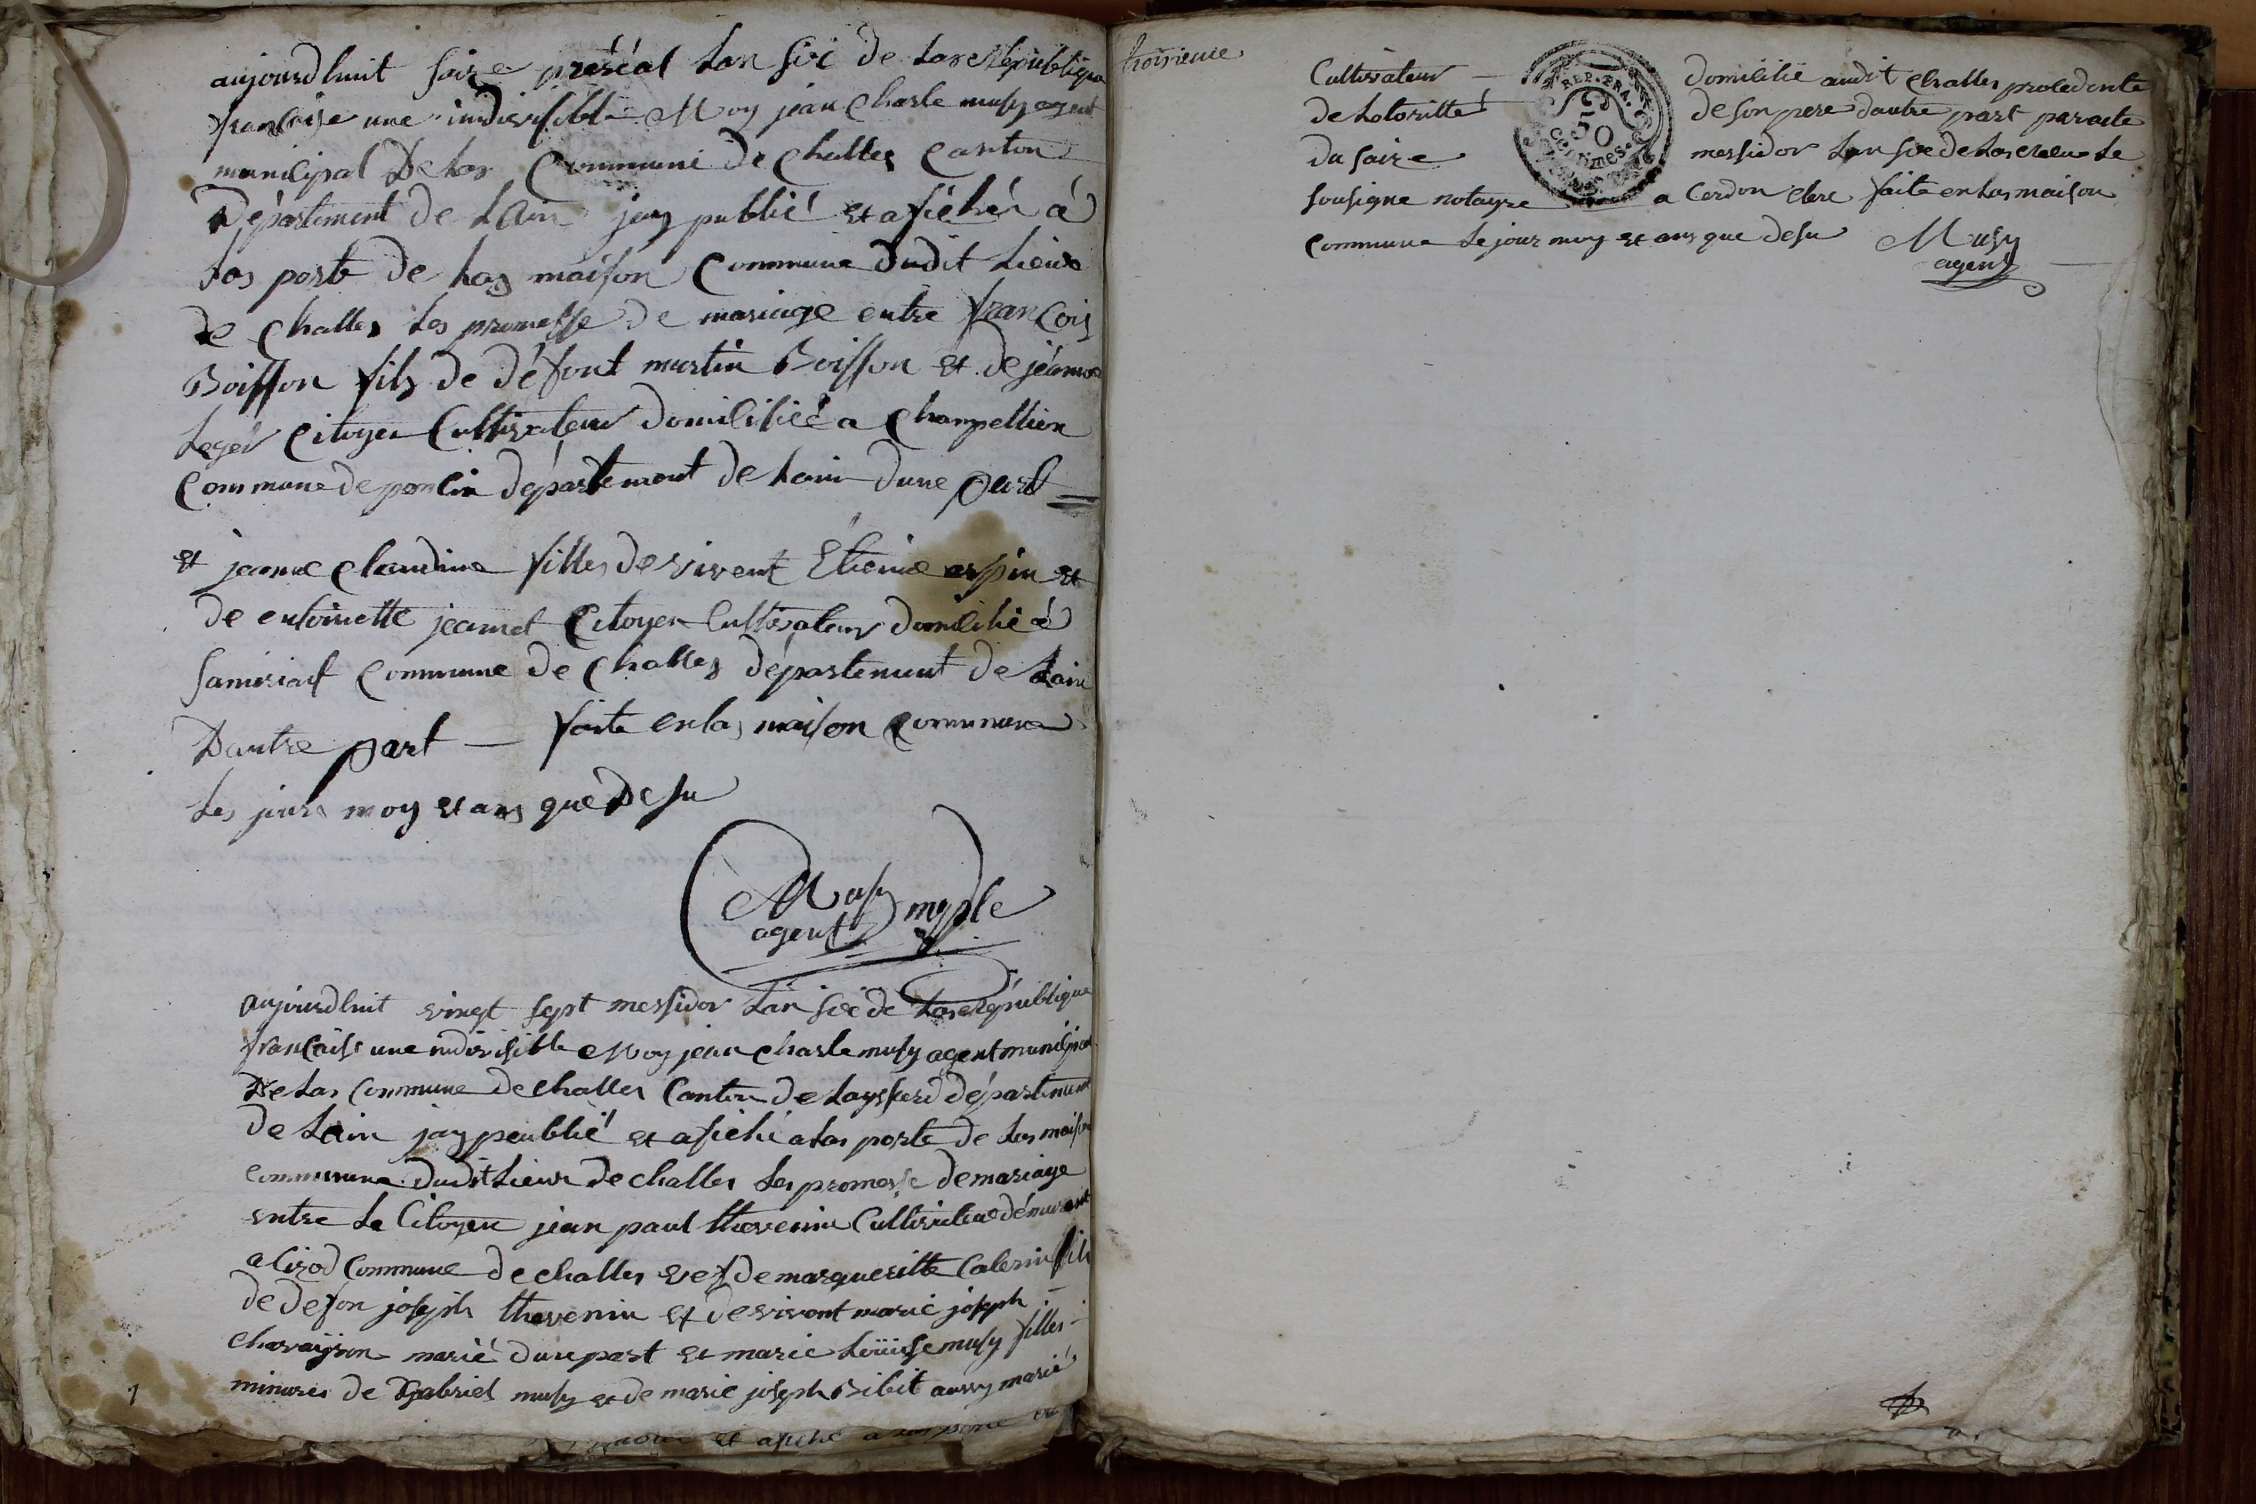 aujourdhuit saize préréal Lan six de Las Republique
française une indivisible Moy jean Charle musy agent
municipal De Las Commune de Challes Canton
Département de Lain jay publié et afichés à
Las porte de Las maison Commune dudit Lieux
de Challes Les promesse de mariage entre françois
Boisson fils de défont martin Boisson et de jeanne
Leger Citoyen Cultivateur domilihié a Champellien
Commune de poncin département de Lain dune part
et jeanne Claudine filles de vivent Etienne arpin et
de entoinette jeannet Citoyen Cultivateur domilihié a
samiriat Commune de Challes département de Lain
Dautre part — faite en las maison Commune
Les jours moy et ans que De su
Musy mople
agent
aujourdhuit vingt sept messidor Lan six de Las République
française une indivisible Moy jean Charle musy agent municipal
De Las Commune de Challes Canton de Laysserd département
de Lain jay peublié et afiché a Las porte de Las maison
Commune dudit Lieux de Challes Les promesse de mariage
entre Le Citoyen jean paul thevenin Cultivateur démurant
a Cirod Commune de Challes vef de marguerite Calerin fils
de defon joseph thevenin et de vivent marie joseph
marié dune part et marie Louisse musy filles
minures de Gabriel musy et de marie joseph Bibet aussy marié
et afiché a
troisieme
REP. FRA.
50
Centimes.
Cultivateur — domilihié audit Challes procedente
de Lotoritté de son pere dautre part par acte
du saize messidor Lan sixe de Las Le
sousigne notayre a Cerdon faite en Las maison
Commune Le jour moy et ans que desu Musy
agent